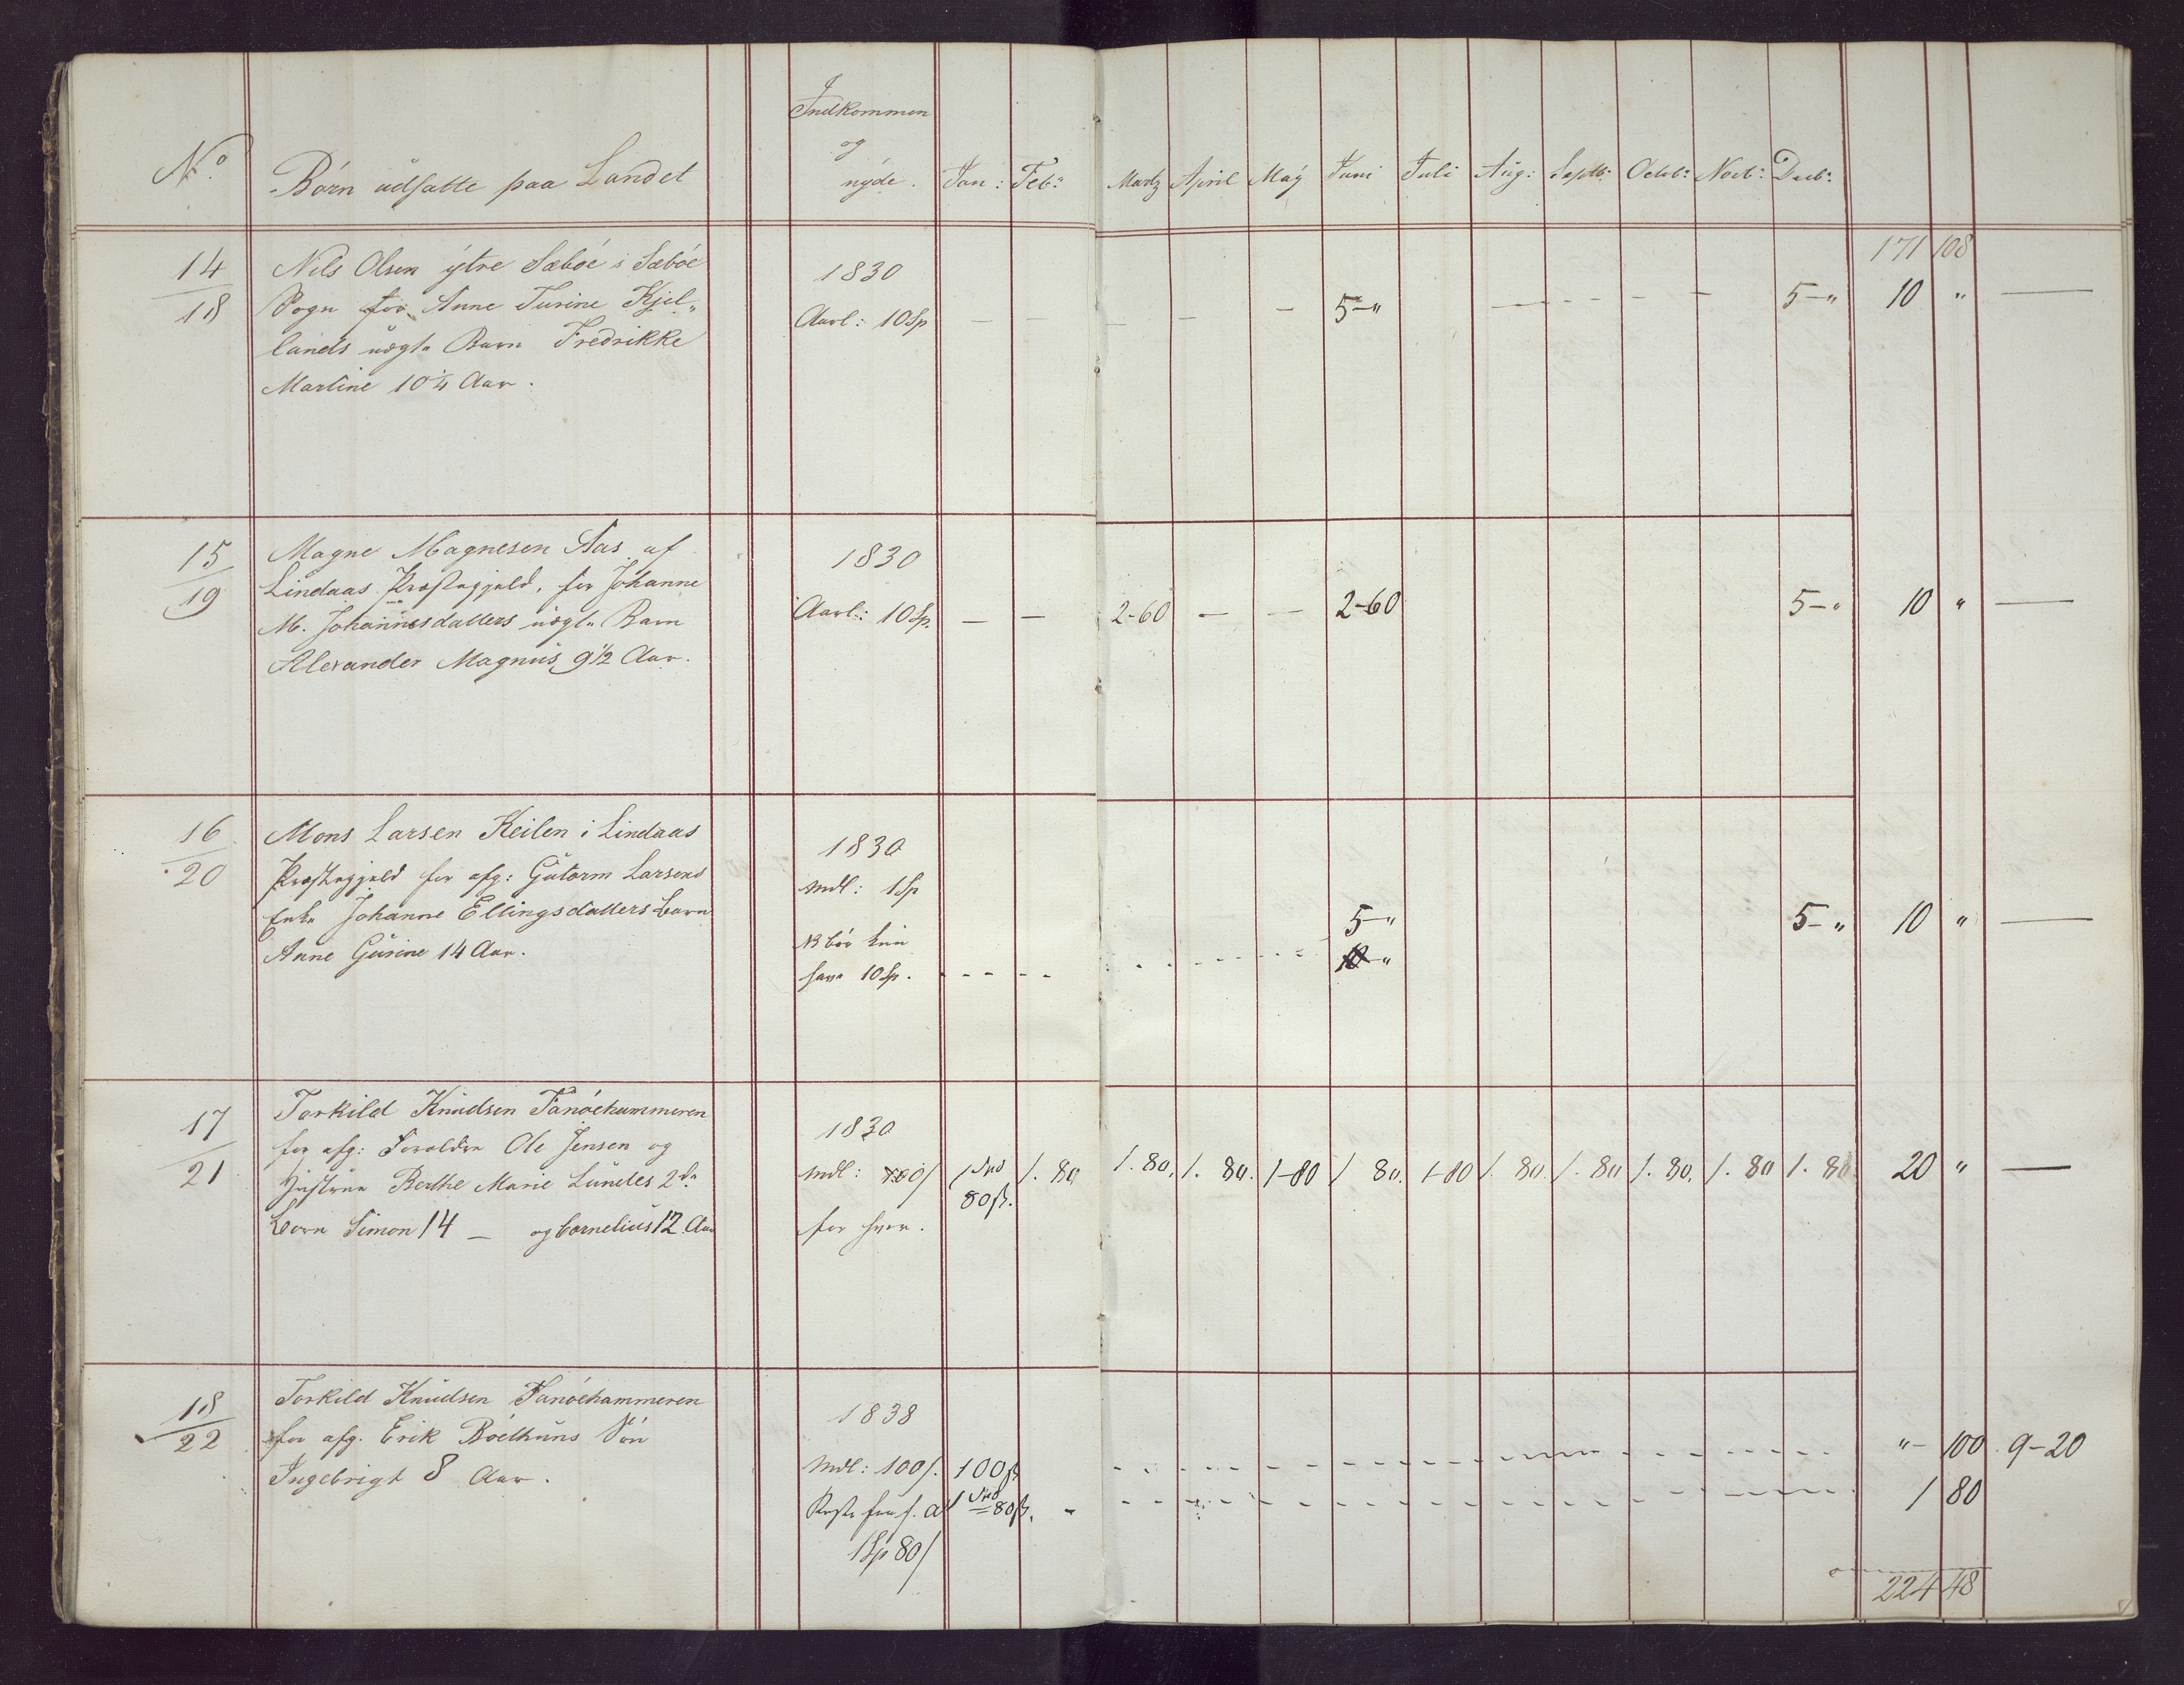 No. Børn udsatte paa Landet Indkommen og nyde. Jan: Feb: Martz April Maÿ Juni Juli Aug: Septb: Octob: Novb: Decb:
171 108
14/18 Nils Olsen ÿtre Sæbøe i Sæbøe 1830
Sogn for Anne Turine Kjel- Aarl: 10 Sp — — — — — 5 - " — — — — — 5 - " 10 " —
lands uægte Barn Fredrikke
Martine 10¼ Aar.
15/19 Magne Magnesen Aas af 1830
Lindaas Præstegjeld, for Johanne Aarl: 10 Sp. — — 2-60 — — 2-60 5 - " 10 " —
M. Johannesdatters uægte Barn
Alexander Magnus 9½ Aar.
16/20 Mons Larsen Keilen i Lindaas 1830
Præstegjeld for afg: Gutorm Larsens Mdl: 1 Sp
Enke Johanne Ellingsdatters Barn NB bør kun 5 - " 5 - " 10 " —
Anne Gurine 14 Aar. have 10 Sp. - - - - - 10 - "
17/21 Torkild Knudsen Fanøehammeren 1830
for afg: Forældre Ole Jensen og
Hustrue Berthe Marie Lundes 2de Mdl: 100/ 1 Spd 80 ß. 1. 80 1. 80. 1. 80. 1-80 1 80. 1-80 1. 80. 1. 80 1. 80. 1. 80 1. 80. 20 " —
Børn Simon 14 — og Cornelius 12 Aar for hver.
18/22 Torkild Knudsen Fanøehammeren 1838
for afg. Erik Bøelhuns Søn
Ingebrigt 8 Aar. Mdl: 100/. 100 ß " - 100 . 9-20
1 Spd 80 ß. 1 80
1 Sp 80/
224 48